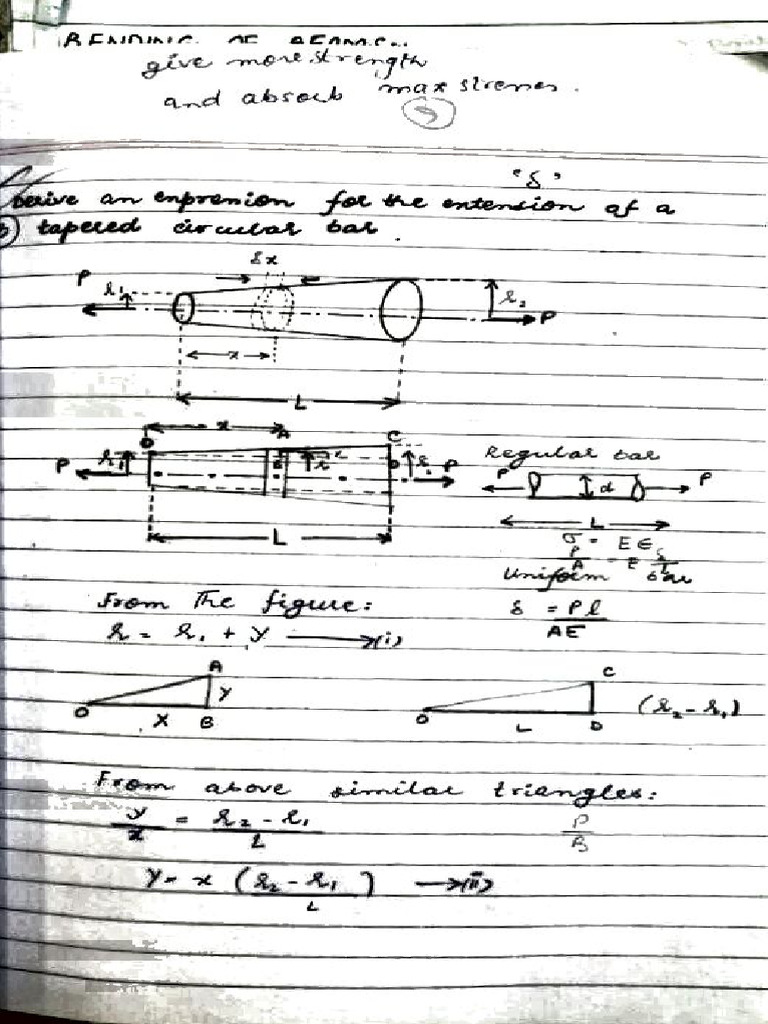 BENDING OF BEAMS:
give more strength
and absorb max stresses.
9
'δ'
Derive an expression for the extension of a
b) tapered circular bar.
δx
P r₁ r₂ P
x
L
x
O A C
P r₁ r r₂ P
L
Regular bar
P d P
L
σ = E ϵ
P/A = E δ/L
Uniform bar
δ = Pl/AE
From The figure:
r = r₁ + y → (i)
A
y
O x B
C
(r₂ - r₁)
O L D
From above similar triangles:
y/x = r₂ - r₁/L
P/B
y = x (r₂ - r₁/L) → (ii)